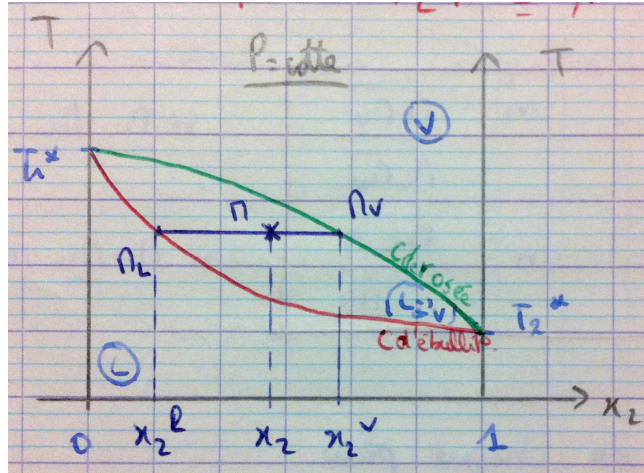 T
P=cotte
T
V
T₁*
M
M_V
M_L
C de rosée
(L⇌V)
T₂*
C d'ébullit°
L
x₂
0
x₂^ℓ
x₂
x₂^V
1